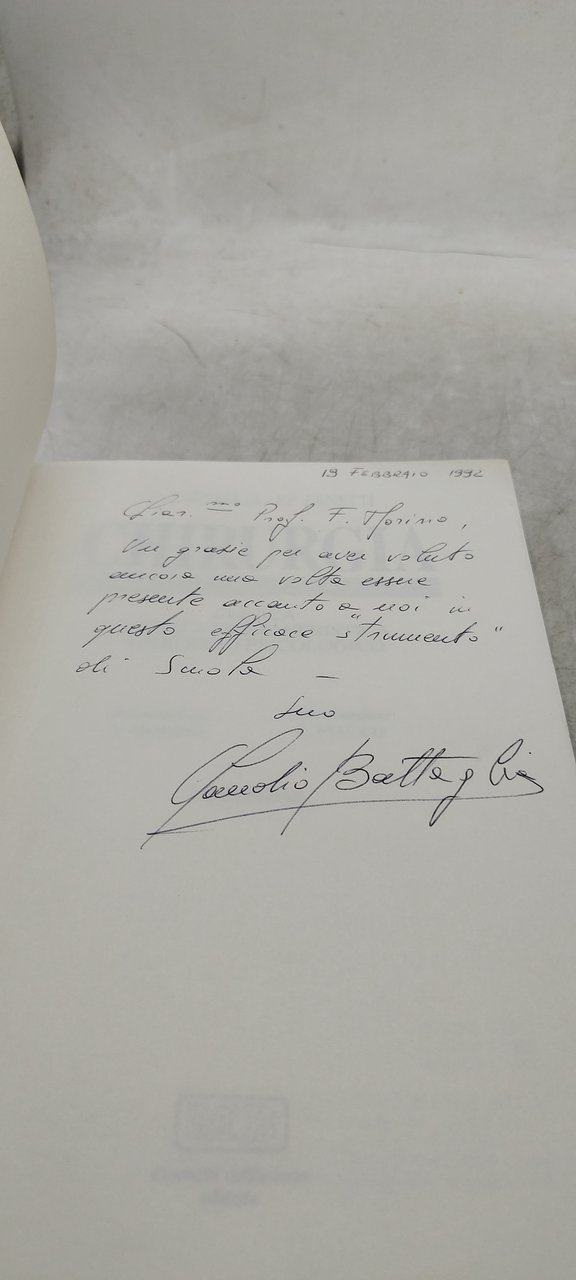 19 FEBBRAIO 1992
Chiar.mo Prof. F. Morino,
Un grazie per aver voluto
ancora una volta essere
presente accanto a noi in
questo efficace "strumento"
di Scuola —
Suo
Claudio Battaglia